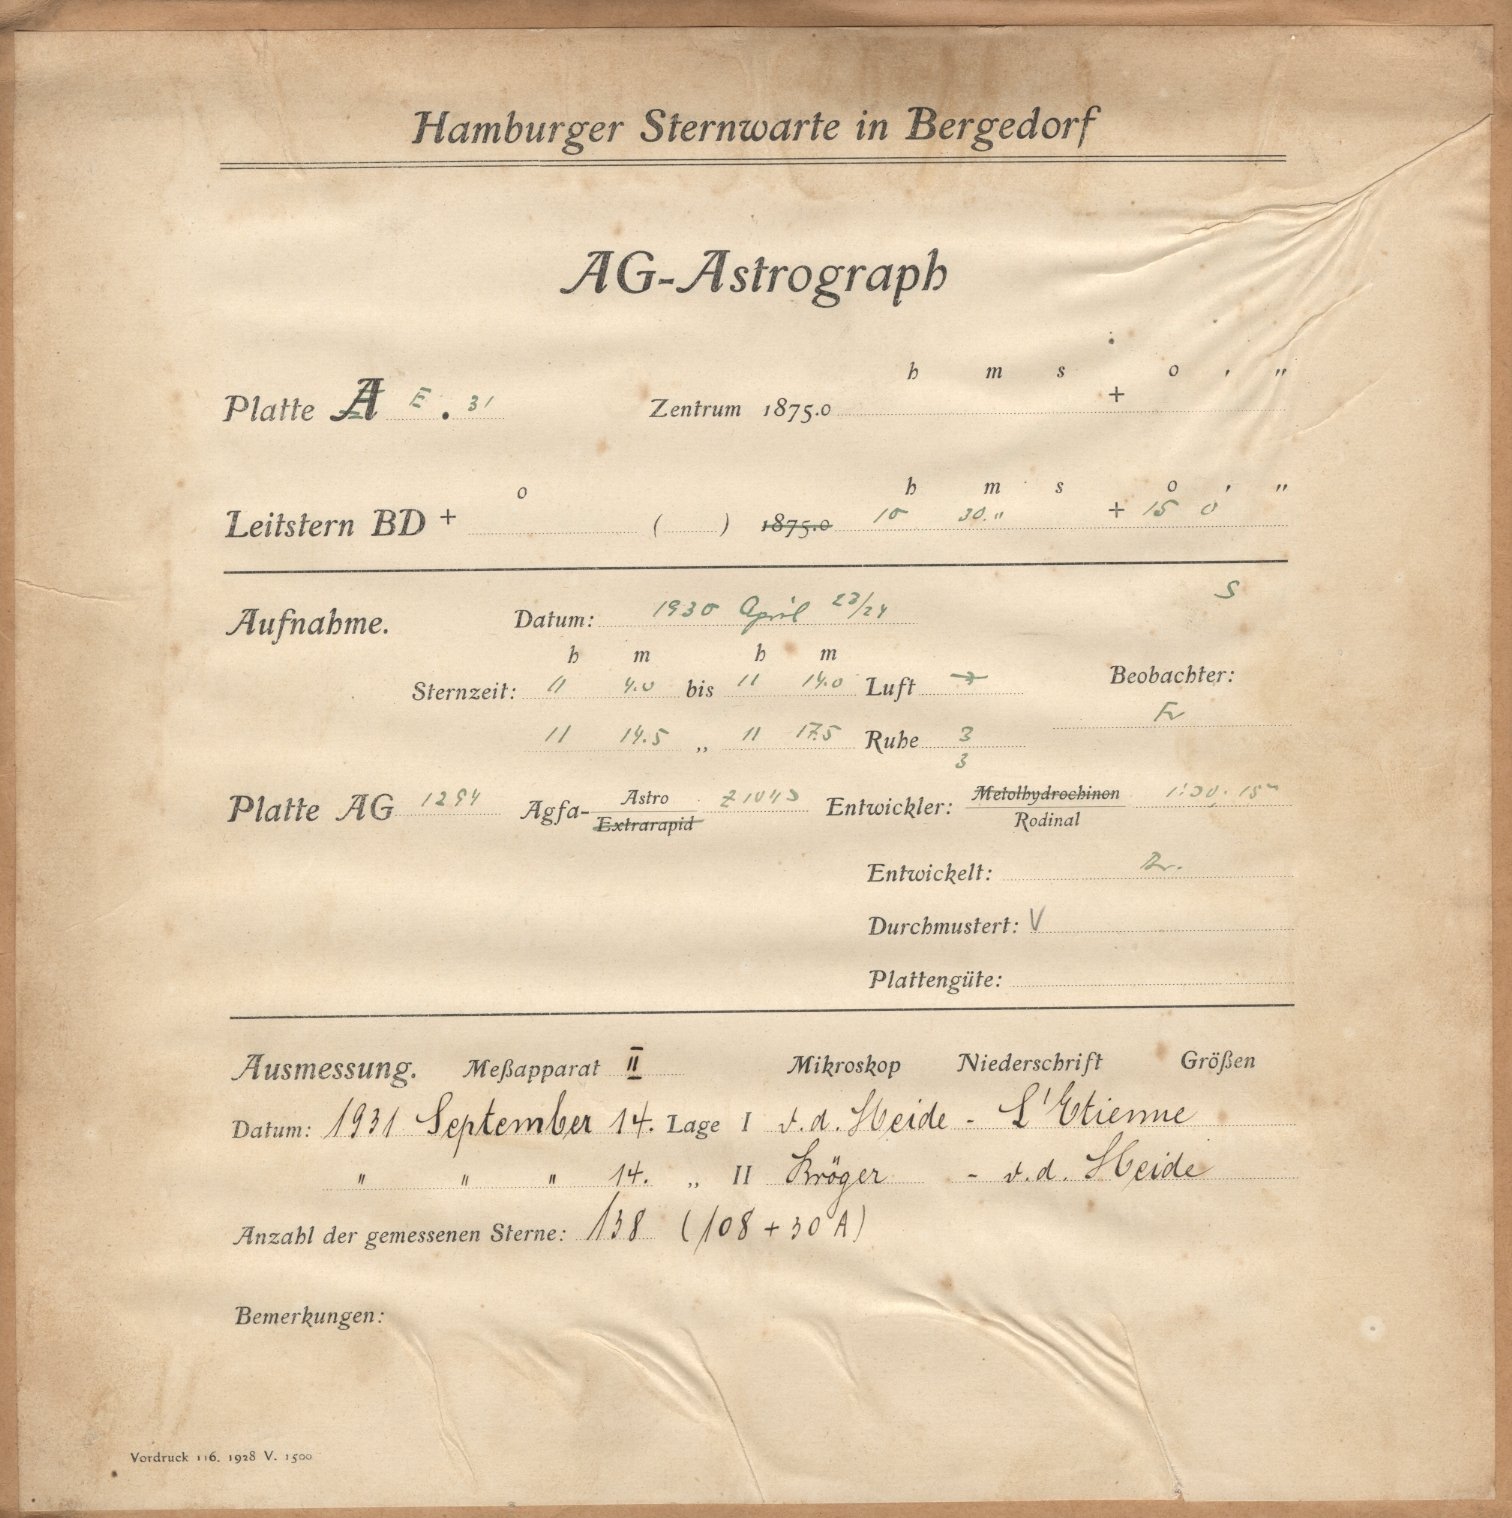 Hamburger Sternwarte in Bergedorf
AG-Astrograph
h m s o ' "
Platte A E . 31 Zentrum 1875.0 +
o h m s o ' "
Leitstern BD + ( ) 1875.0 10 30. + 15 0
S
Aufnahme. Datum: 1930 April 23/24
h m h m
Sternzeit: 11 4.0 bis 11 14.0 Luft Beobachter:
11 14.5 „ 11 17.5 Ruhe 3
3
Platte AG 1294 Agfa- Astro Extrarapid Z1043 Entwickler: Metolhydrochinon Rodinal
Entwickelt:
Durchmustert: V
Plattengüte:
Ausmessung. Meßapparat II Mikroskop Niederschrift Größen
Datum: 1931 September 14. Lage I v.d. Heide - L'Etienne
" " " 14. „ II Kröger - v.d. Heide
Anzahl der gemessenen Sterne: 138 (108 + 30 A)
Bemerkungen:
Vordruck 116. 1928 V. 1500